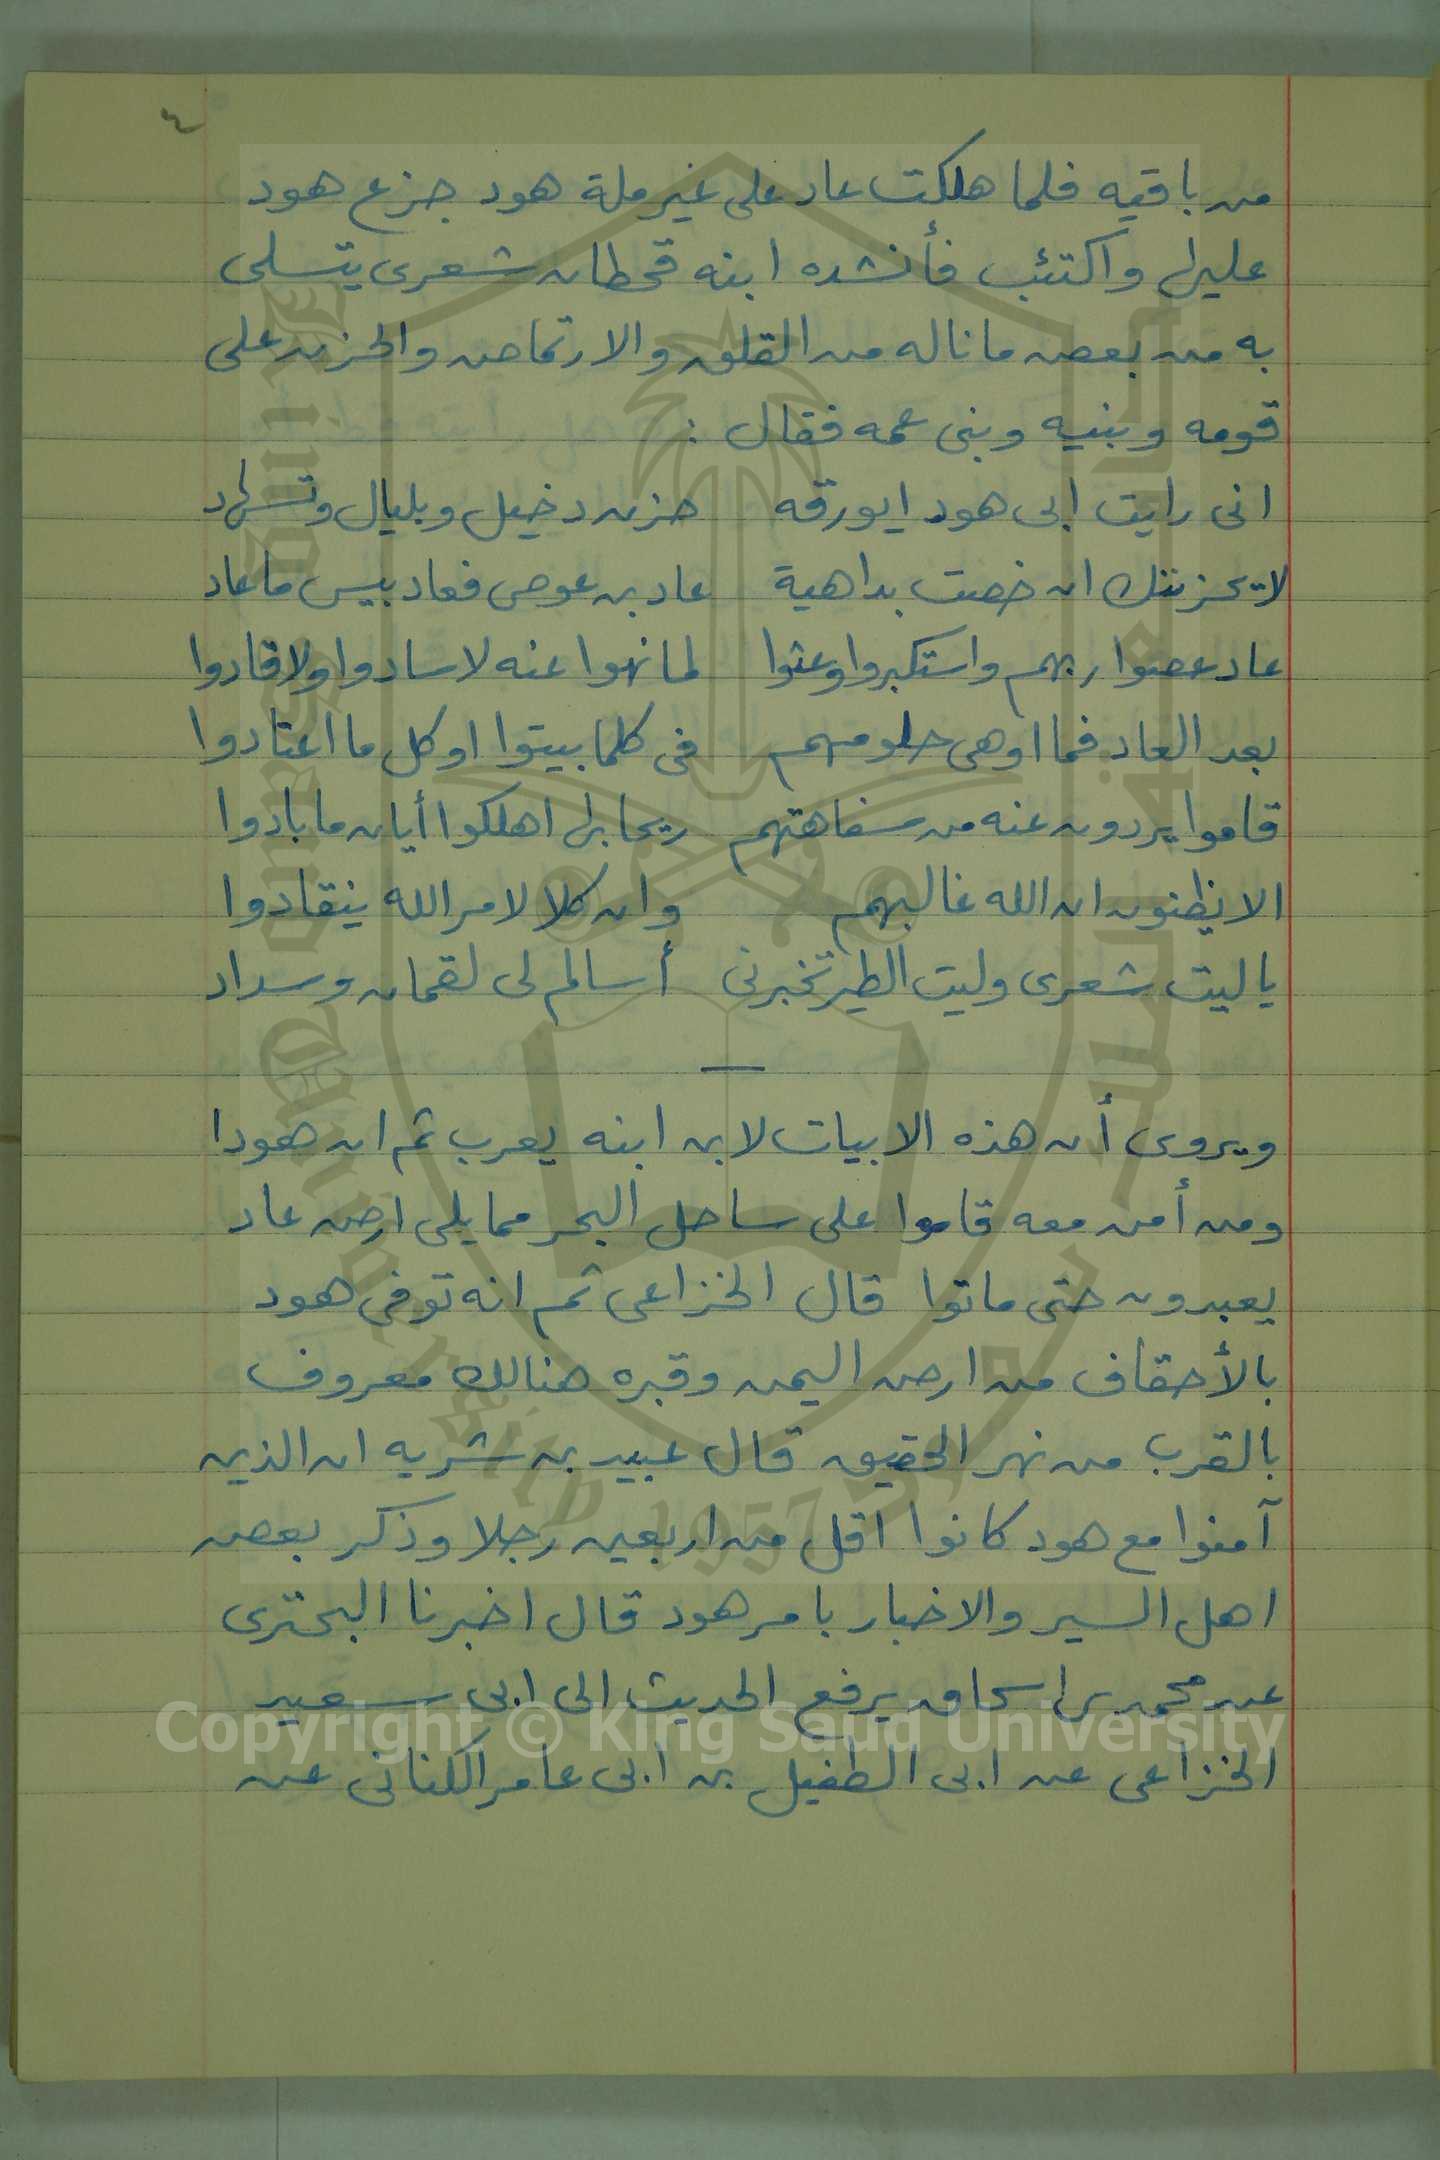 ٤
من باقيه فلما هلكت عاد على غير ملة هود جزع هود
عليهم واكتئب فأنشده ابنه قحطان شعرى يتسلى
به من بعض ما ناله من القلق والارتماض والحزن على
قومه وبنيه وبنى عمه فقال :
انى رايت ابى هود ايورقه حزن دخيل وبلبال وتسهاد
لا يحزننك ان خصت بداهية عاد بن عوص فعاد بيس ما عاد
عاد عصوا ربهم واستكبروا وعثوا لما نهوا عنه لا سادوا ولا قادوا
بعد العاد فما اوهى حلومهم فى كلما بيتوا او كل ما اعتادوا
قاموا يردون عنه من سفاهتهم ريحا بها اهلكوا أيان ما بادوا
الا يظنون ان الله غالبهم وان كلا لامر الله ينقادوا
يا ليت شعرى وليت الطير تخبرنى أسالم لى لقمان وسداد
ويروى أن هذه الابيات لابن ابنه يعرب ثم ان هودا
ومن أمن معه قاموا على ساحل البحر مما يلى ارض عاد
يعبدون حتى ماتوا قال الخزاعى ثم انه توفى هود
بالأحقاف من ارض اليمن وقبره هنالك معروف
بالقرب من نهر الحقيق قال عبيد بن شريه ان الذين
آمنوا مع هود كانوا اقل من اربعين رجلا وذكر بعض
اهل السير والاخبار بامر هود قال اخبرنا البحترى
عن محمد بن اسحاق يرفع الحديث الى ابى سعيد
الخزاعى عن ابى الطفيل بن ابى عامر الكنانى عن
Copyright © King Saud University
King Saud University 1957
جامعة الملك سعود